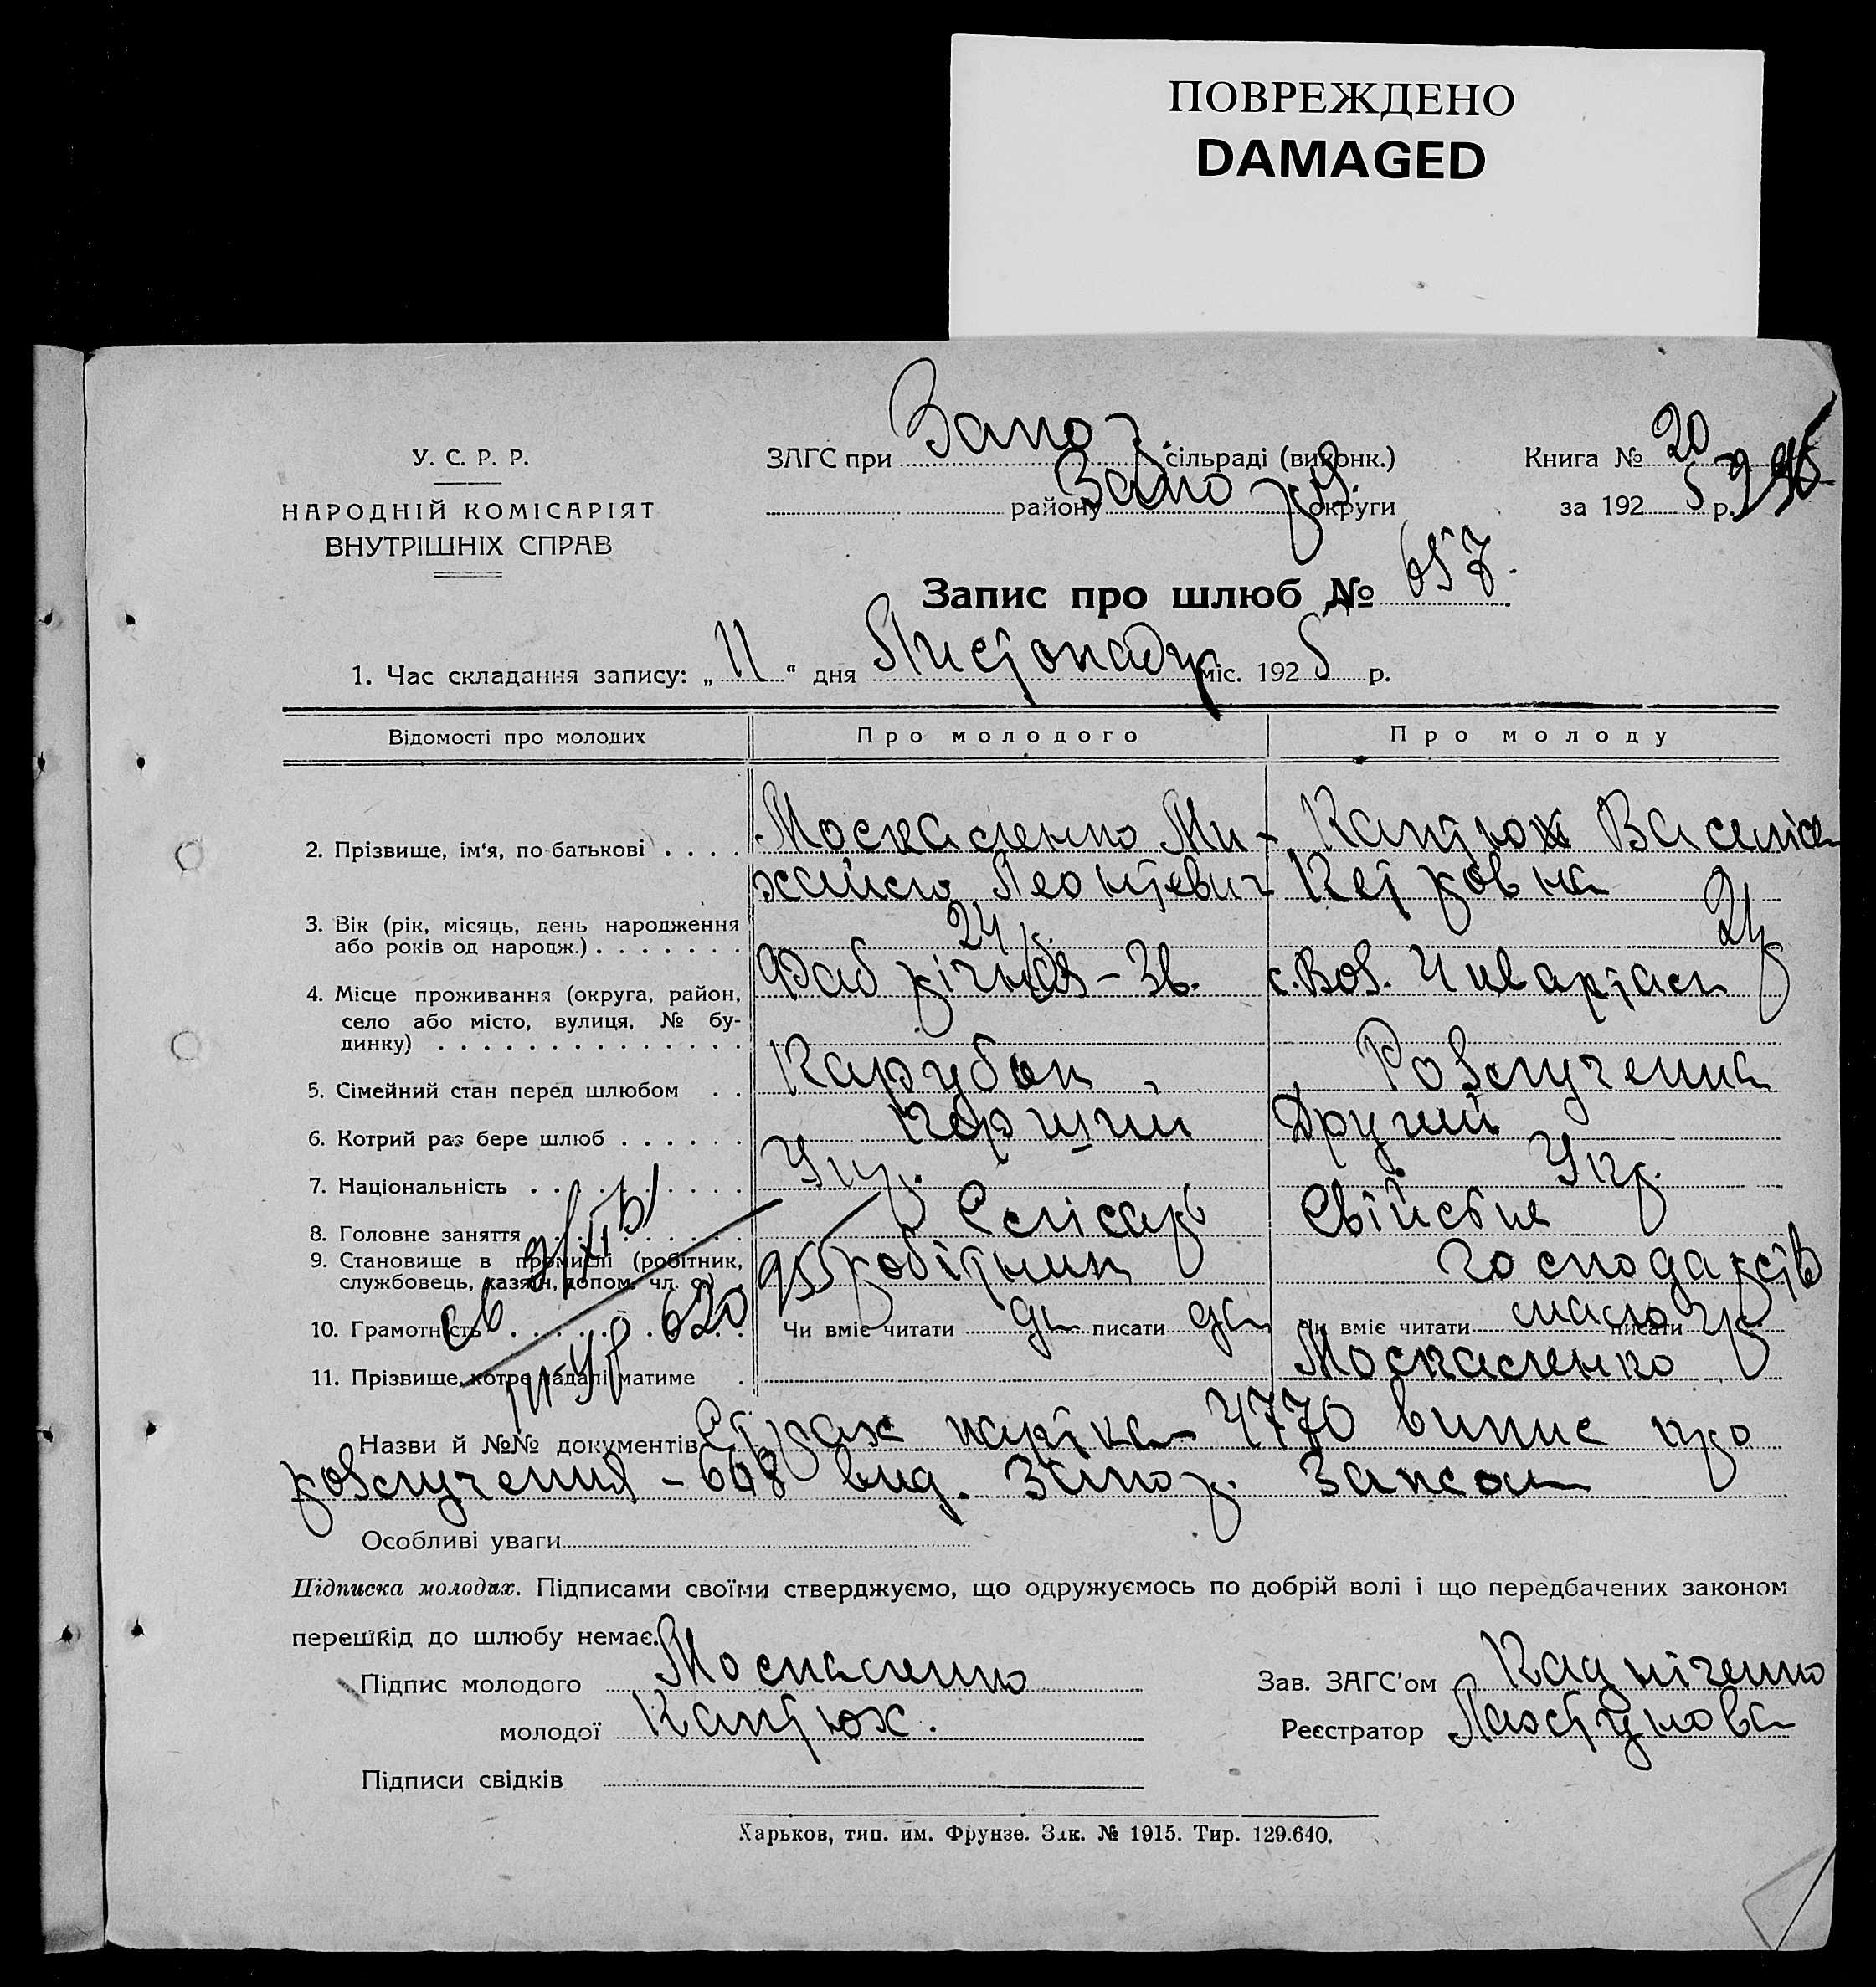 ПОВРЕЖДЕНО
DAMAGED
У. С. Р. Р.
НАРОДНІЙ КОМІСАРІЯТ
ВНУТРІШНІХ СПРАВ
ЗАГС при Запоз. сільраді (виконк.)
району Запоз. округи
Книга № 20
за 192 5 р.
Запис про шлюб № 657.
1. Час складання запису: „ 11 “ дня Листопаду міс. 192 5 р.
Відомості про молодих
Про молодого
Про молоду
2. Прізвище, ім'я, по батькові . . . .
Москаленко Ми-
хайло Леонтєвич
Каптюх
Петровна
3. Вік (рік, місяць, день народження
або років од народж.) . . . . . . .
24 р.
4. Місце проживання (округа, район,
село або місто, вулиця, № бу-
динку) . . . . . . . . . . . . . .
с. Воз.
5. Сімейний стан перед шлюбом . .
Парубок
Розлученна
6. Котрий раз бере шлюб . . . . . .
Перший
Другий
7. Національність . . . . . . . . . .
Укр.
Укр.
8. Головне заняття . . . . . . . . .
Слісарь
Свійстве
9. Становище в промислі (робітник,
службовець, хазяїн, допом. чл. с.)
робітник
господарств
10. Грамотність . . . . . . . . . .
620
Чи вміє читати да писати да
Чи вміє читати мало писати гр
11. Прізвище, котре надалі матиме .
Москаленко
Назви й №№ документів Страх картка 4770 випис про
розлучення - 668 вид. Запоз. Загсом
Особливі уваги
Підписка молодих. Підписами своїми стверджуємо, що одружуємось по добрій волі і що передбачених законом
перешкід до шлюбу немає.
Підпис молодого Москаленко
молодої Каптюх.
Зав. ЗАГС'ом
Реєстратор Лахтунова
Підписи свідків
Харьков, тип. им. Фрунзе. Зак. № 1915. Тир. 129.640.